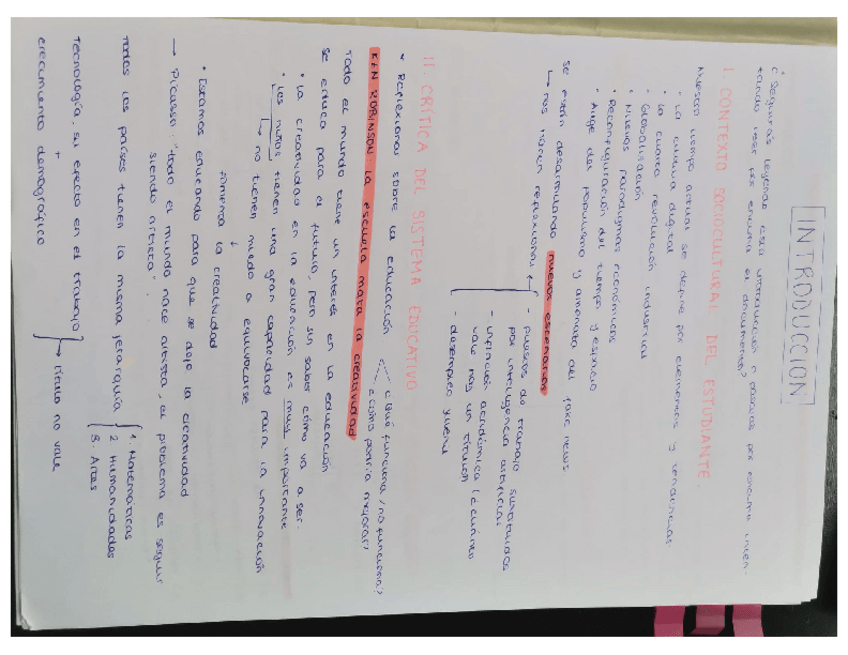 INTRODUCCIÓN
¿Seguirás leyendo esta introducción o pasarás por encima inten-
tando leer por encima el documento?
I. CONTEXTO SOCIOCULTURAL DEL ESTUDIANTE.
Nuestro tiempo actual se define por fenómenos y tendencias
• La cultura digital
• La cuarta revolución industrial
• Globalización
• Nuevos paradigmas económicos
• Reconfiguración del tiempo y espacio
• Auge del populismo y aumento del fake news
Se están desarrollando nuevos escenarios
↳ nos hacen reflexionar
- puestos de trabajo sustituidos
por inteligencia artificial
- inflación académica (¿cuánto
vale más un título?)
- desempleo juvenil
II. CRÍTICA DEL SISTEMA EDUCATIVO
* Reflexionar sobre la educación
¿Qué funciona/no funciona?
¿cómo podría mejorar?
KEN ROBINSON: la escuela mata la creatividad
Todo el mundo tiene un interés en la educación
Se educa para el futuro, pero sin saber cómo va a ser.
• La creatividad en la educación es muy importante
• Les niñes tienen una gran capacidad para la innovación
↳ no tienen miedo a equivocarse
↓
fomenta la creatividad
• Estamos educando para que se deje la creatividad
→ Picasso: "todo el mundo nace artista, el problema es seguir
siendo artista".
Todos los países tienen la misma jerarquía
1. Matemáticas
2. Humanidades
3. Artes
Tecnología, su efecto en el trabajo
+
crecimiento demográfico
→ título no vale